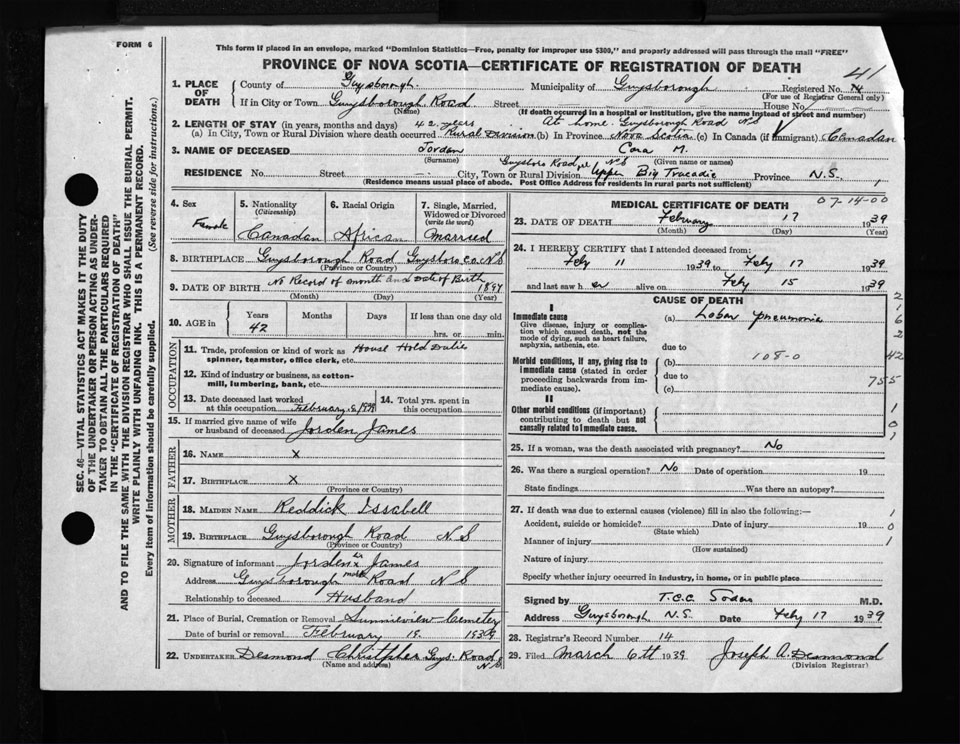 FORM 6
This form if placed in an envelope, marked "Dominion Statistics—Free, penalty for improper use $300," and properly addressed will pass through the mail "FREE"
41
PROVINCE OF NOVA SCOTIA—CERTIFICATE OF REGISTRATION OF DEATH
1. PLACE OF DEATH
County of Guysborough.
Municipality of Guysborough
Registered No.
(For use of Registrar General only)
If in City or Town Guysborough Road Street House No.
(Name)
(If death occurred in a hospital or institution, give the name instead of street and number)
2. LENGTH OF STAY (in years, months and days) 42 years At home Guysborough Road
(a) In City, Town or Rural Division where death occurred Rural Division (b) In Province Nova Scotia (c) In Canada (if immigrant) Canadian
3. NAME OF DECEASED Jordan Cora M.
(Surname) (Given name or names)
RESIDENCE No. Street City, Town or Rural Division Guysboro Road NS Upper Big Tracadie Province N.S.
(Residence means usual place of abode. Post Office Address for residents in rural parts not sufficient)
4. Sex
Female
5. Nationality
(Citizenship)
Canadian
6. Racial Origin
African
7. Single, Married, Widowed or Divorced
(write the word)
Married
8. BIRTHPLACE Guysborough Road Guysboro Co. N S
(Province or Country)
9. DATE OF BIRTH No Record of month and Date of Birth 1897
(Month) (Day) (Year)
10. AGE in
Years Months Days If less than one day old
42 hrs. or min.
OCCUPATION
11. Trade, profession or kind of work as House Hold Duties
spinner, teamster, office clerk, etc.
12. Kind of industry or business, as cotton-
mill, lumbering, bank, etc.
13. Date deceased last worked
at this occupation February
14. Total yrs. spent in
this occupation
15. If married give name of wife
or husband of deceased Jorden James
FATHER
16. NAME x
17. BIRTHPLACE x
(Province or Country)
MOTHER
18. MAIDEN NAME Reddick Issabell
19. BIRTHPLACE Guysborough Road N S
(Province or Country)
20. Signature of informant Jorden his x mark James
Address Guysborough Road N S
Relationship to deceased Husband
21. Place of Burial, Cremation or Removal Sunnieview Cemetery
Date of burial or removal February 19. 1939
22. UNDERTAKER Desmond Christopher Guys. Road N S
(Name and address)
MEDICAL CERTIFICATE OF DEATH
07-14-00
23. DATE OF DEATH February 17 1939
(Month) (Day) (Year)
24. I HEREBY CERTIFY that I attended deceased from:
Feby 11 1939 to Feby 17 1939
and last saw her alive on Feby 15 1939
CAUSE OF DEATH
I
Immediate cause
Give disease, injury or complication which caused death, not the mode of dying, such as heart failure, asphyxia, asthenia, etc.
(a) Lobar pneumonia
due to
Morbid conditions, if any, giving rise to immediate cause (stated in order proceeding backwards from immediate cause).
(b) 108-0
due to
(c)
II
Other morbid conditions (if important) contributing to death but not causally related to immediate cause.
2
1
6
2
42
755
1
0
1
25. If a woman, was the death associated with pregnancy? No
26. Was there a surgical operation? No Date of operation 19
State findings Was there an autopsy?
27. If death was due to external causes (violence) fill in also the following:—
Accident, suicide or homicide? Date of injury 19
(State which)
Manner of injury
(How sustained)
Nature of injury
Specify whether injury occurred in industry, in home, or in public place
1
0
1
Signed by T.C.C. M.D.
Address Guysborough, N.S. Date Feby 17 1939
28. Registrar's Record Number 14
29. Filed March 6th 1939 Joseph A. Desmond
(Division Registrar)
SEC. 46—VITAL STATISTICS ACT MAKES IT THE DUTY
OF THE UNDERTAKER OR PERSON ACTING AS UNDER-
TAKER TO OBTAIN ALL THE PARTICULARS REQUIRED
IN THE "CERTIFICATE OF REGISTRATION OF DEATH"
AND TO FILE THE SAME WITH THE DIVISION REGISTRAR WHO SHALL ISSUE THE BURIAL PERMIT.
WRITE PLAINLY WITH UNFADING INK. THIS IS A PERMANENT RECORD.
Every item of information should be carefully supplied. (See reverse side for instructions.)